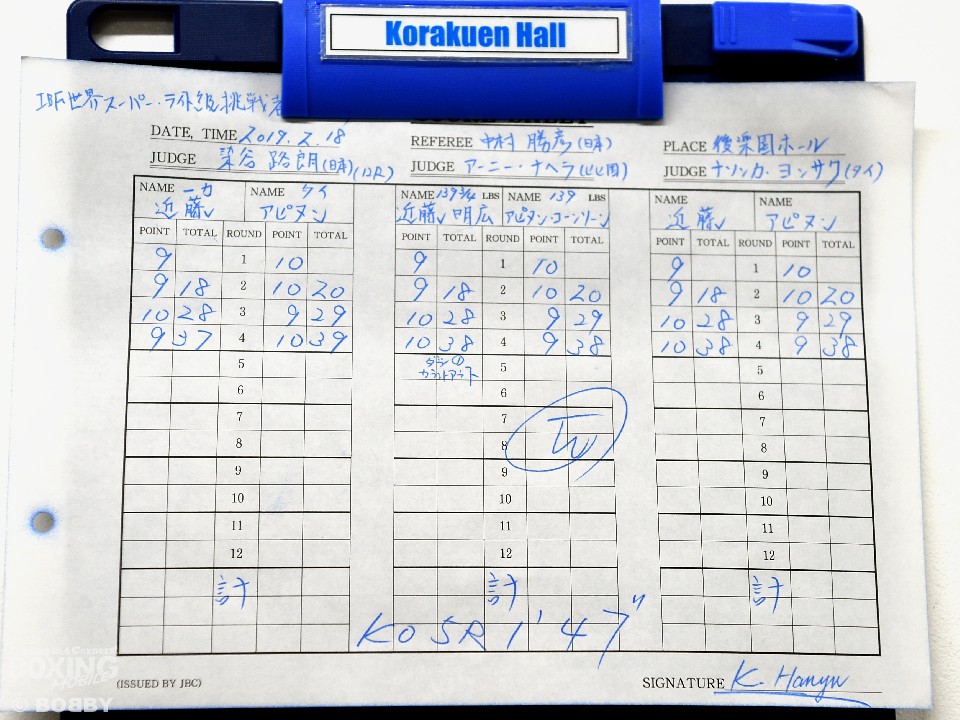 Korakuen Hall
IBF世界スーパー・ライト級挑戦者
DATE, TIME 2019.2.18 REFEREE 中村 勝彦(日本) PLACE 後楽園ホール
JUDGE 染谷 路朗(日本)(12R) JUDGE アーニー・ナヘラ(比国) JUDGE ナソンカ・ヨンサク(タイ)
NAME 一力 NAME タイ NAME 139 3/4 LBS NAME 139 LBS NAME NAME
近藤 アピヌン 近藤 明広 アピヌン・コーンソーン 近藤 アピヌン
POINT TOTAL ROUND POINT TOTAL POINT TOTAL ROUND POINT TOTAL POINT TOTAL ROUND POINT TOTAL
9 1 10 9 1 10 9 1 10
9 18 2 10 20 9 18 2 10 20 9 18 2 10 20
10 28 3 9 29 10 28 3 9 29 10 28 3 9 29
9 37 4 10 39 10 38 4 9 38 10 38 4 9 38
5 ダウン① 5 5
カウントアウト
6 6 6
7 7 7
8 8 8
9 9 9
10 10 10
11 11 11
12 12 12
計 計 計
KO 5R 1'47"
(ISSUED BY JBC) SIGNATURE K. Hanyu
BOXING MOBILE
© BOBBY